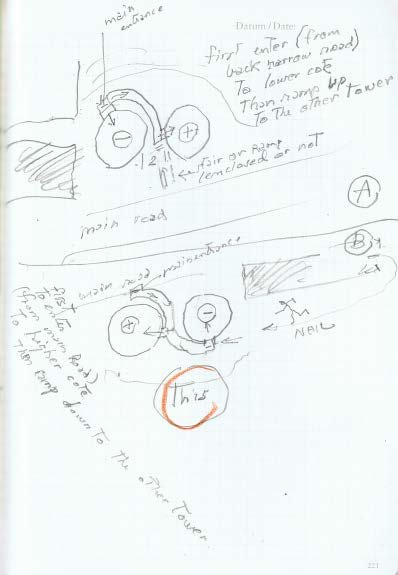 main
entrance
Datum / Date:
first enter (from
back narrow road)
To lower cote
Than ramp up
To the other Tower
−
+
1 2 11
stair or ramp
(enclosed or not
A
main road
B
main road main entrance
+
−
NAIL
This
first
To enter
(from main Road)
To higher cote
To Than Ramp down To the other Tower
221